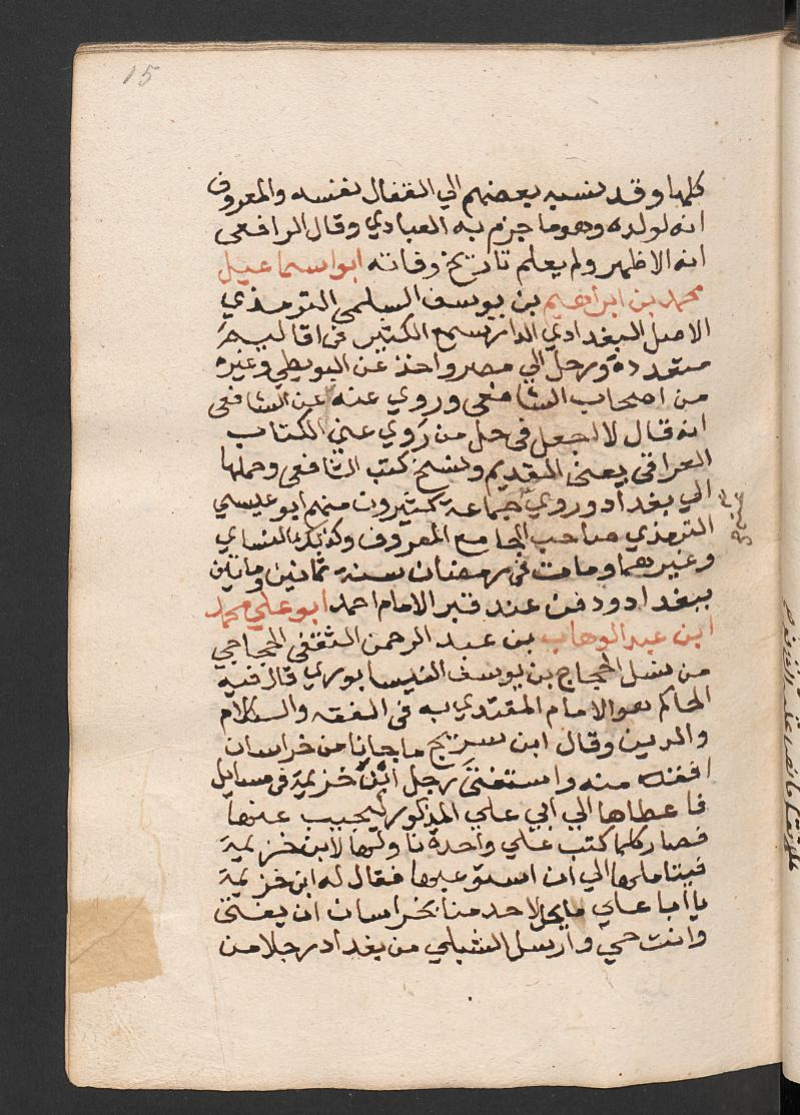 15
كلها وقد نسبه بعضهم الي القفال نفسه والمعروف
انه لولده وهو ما جزم به العبادي وقال الرافعي
انه الاظهر ولم يعلم تاريخ وفاته ابو اسماعيل
محمد بن ابراهيم بن يوسف السلمي الترمذي
الاصل البغدادي الدار سمع الكثير في اقاليم
متعددة ورحل الي مصر واخذ عن البويطي وغيره
من اصحاب الشافعي وروي عنه عن الشافعي
انه قال لا اجعل في حل من روي عني الكتاب
العراقي يعني القديم ونسخ كتب الشافعي وحملها
الي بغداد وروي جماعة كثيرون منهم ابو عيسي
الترمذي صاحب الجامع المعروف وكذلك النساي
وغيرهما ومات في رمضان سنة ثمانين وماتين
ببغداد ودفن عند قبر الامام احمد ابو علي محمد
ابن عبد الوهاب بن عبد الرحمن الثقفي الحجاجي
من نسل الحجاج بن يوسف النيسابوري قال فيه
الحاكم هو الامام المقتدي به في الفقه والكلام
والدين وقال ابن سريج ما جانا من خراسان
افقه منه واستفتي رجل ابن خزيمة في مسايل
فاعطاها الي ابي علي المذكور ليجيب عنها
فصار كلما كتب علي واحدة ناولها لابن خزيمة
فيتاملها الي ان استوعبها فقال له ابن خزيمة
يا ابا علي ما يحل لاحد منا بخراسان ان يفتي
وانت حي وارسل الشبلي من بغداد رجلا من